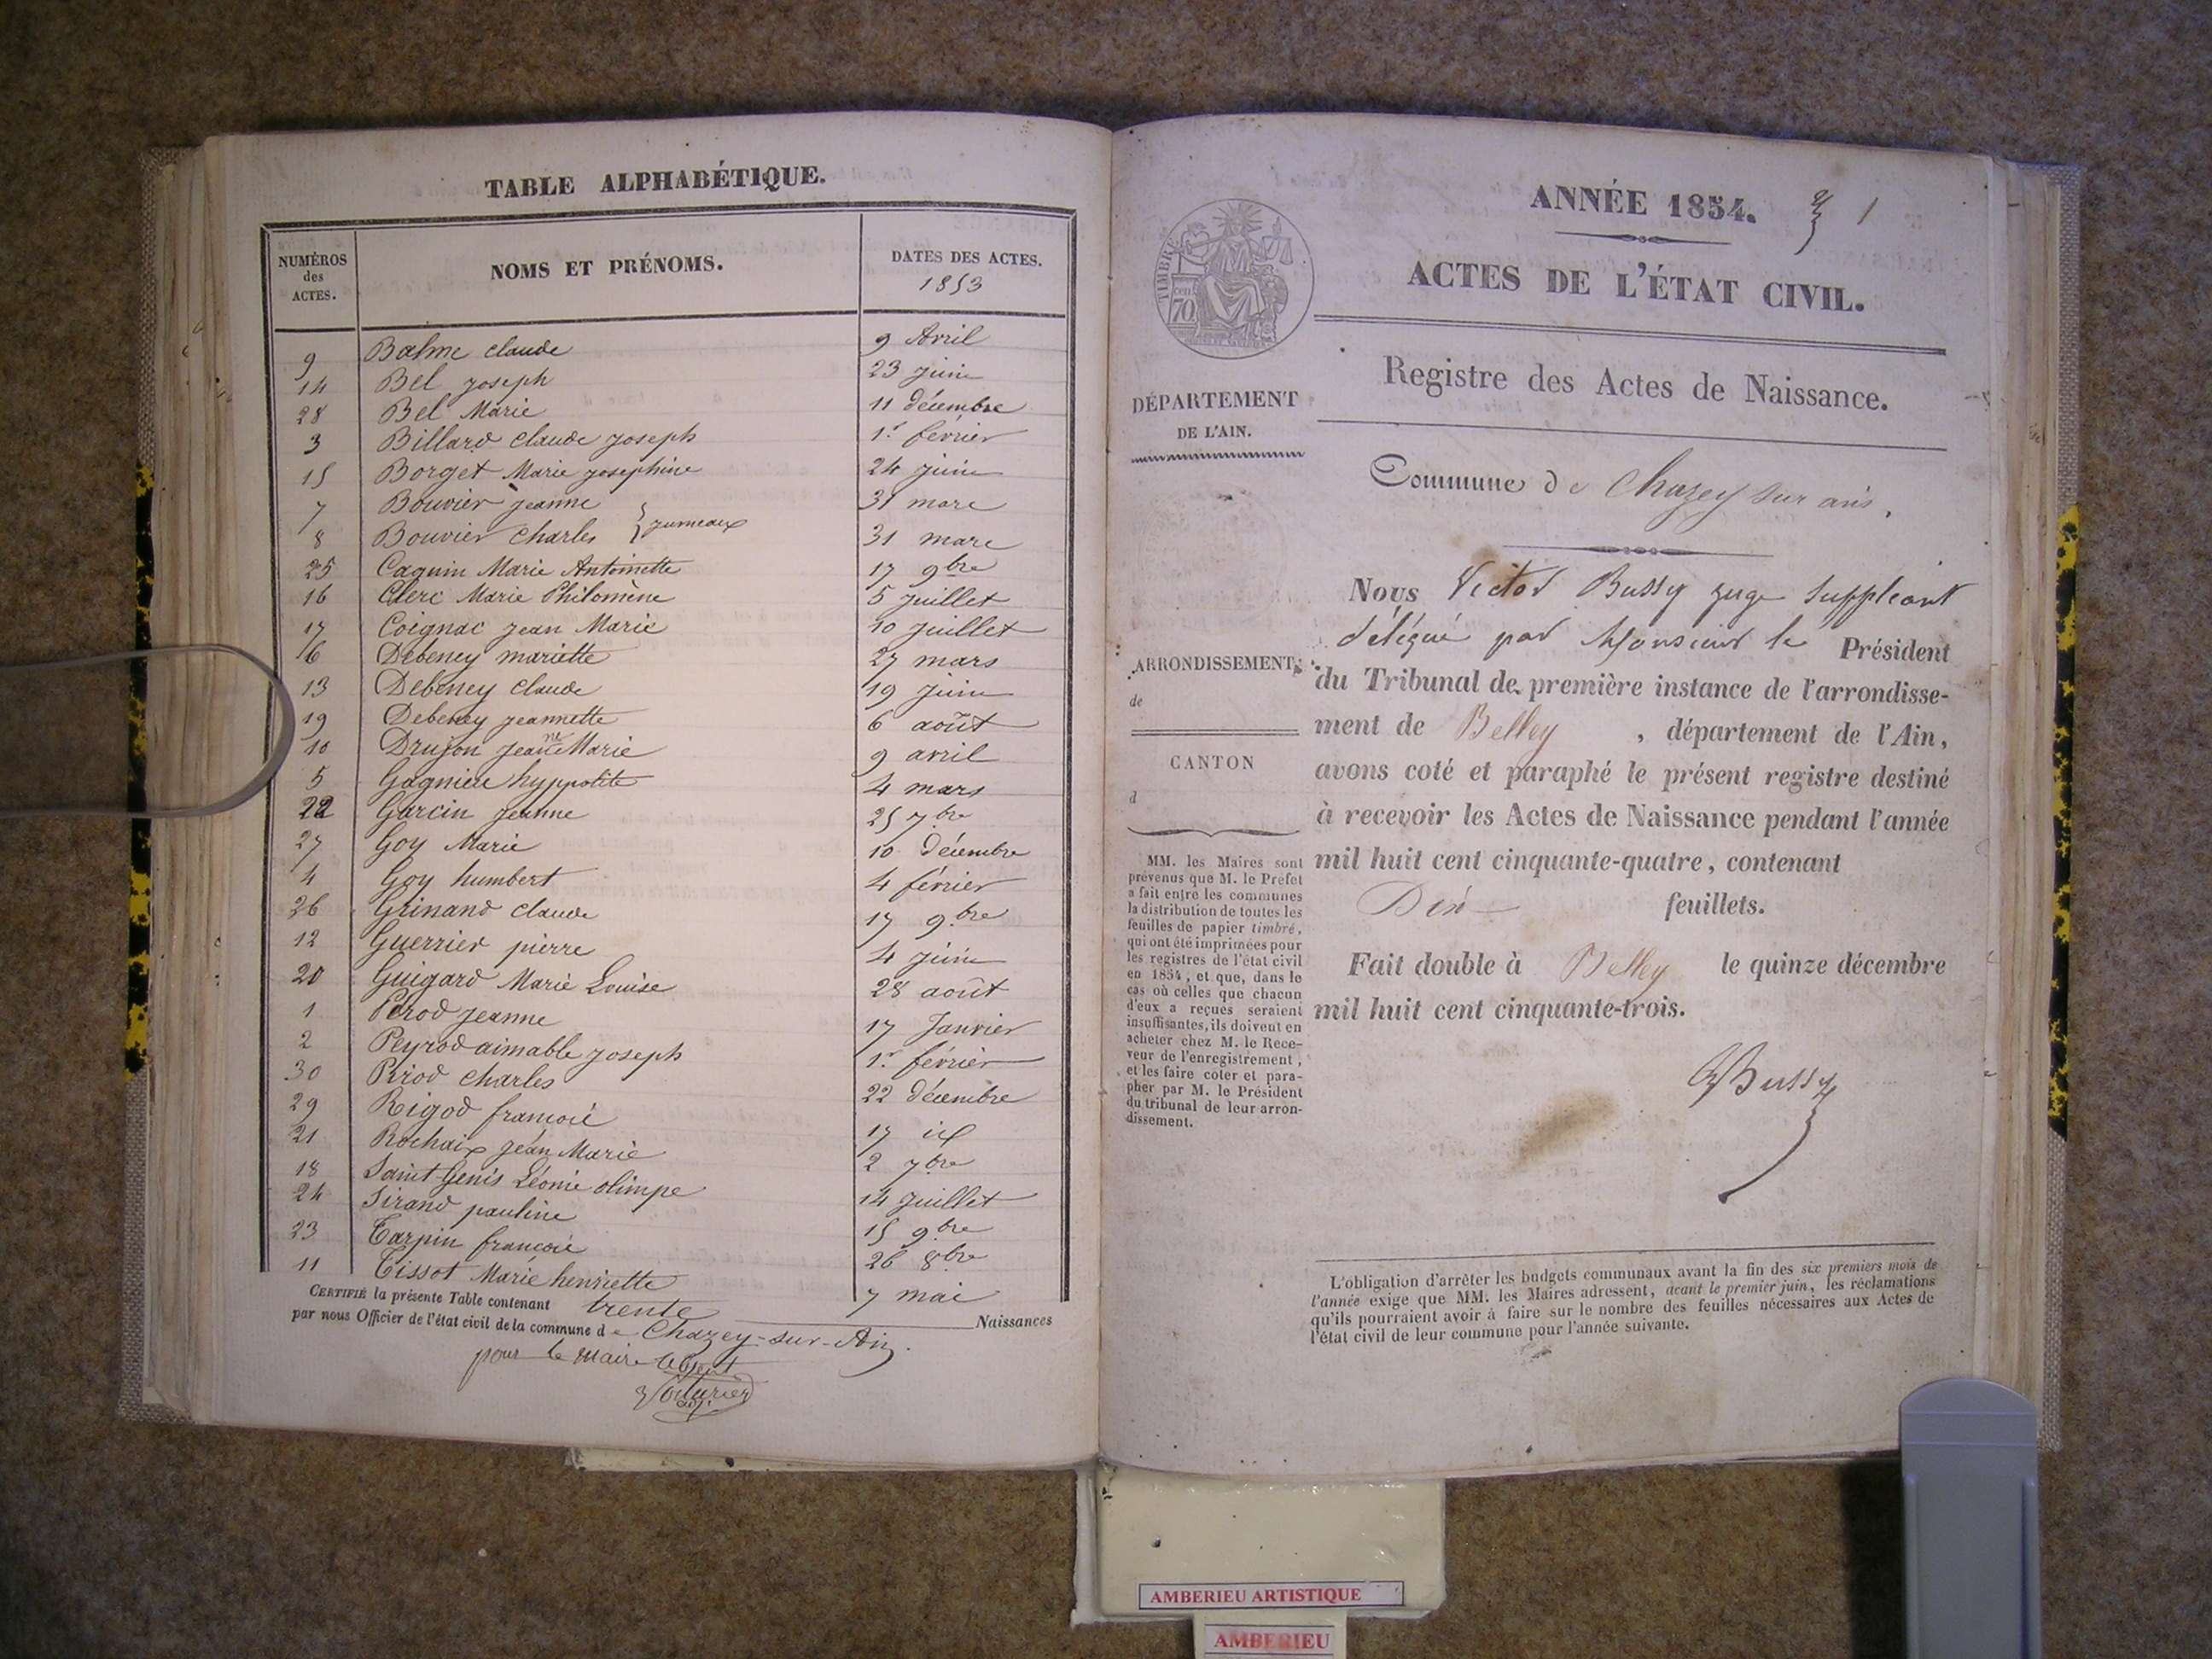 TABLE ALPHABÉTIQUE.
NUMÉROS des ACTES. NOMS ET PRÉNOMS. DATES DES ACTES. 1853
9 Balme claude 9 Avril
14 Bel joseph 23 juin
28 Bel Marie 11 décembre
3 Billard claude joseph 1.r février
15 Borget Marie josephine 24 juin
7 Bouvier jeanne 31 mars
8 Bouvier charles } jumeaux 31 mars
25 Caquin Marie Antoinette 17 9bre
16 Clerc Marie Philomène 5 juillet
17 Coignac jean Marie 10 juillet
6 Debeney mariette 27 mars
13 Debeney claude 19 juin
19 Debeney jeannette 6 août
10 Drujon jeanne Marie 9 avril
5 Gagnieu hyppolite 4 mars
22 Garcin jeanne 25 7bre
27 Goy Marie 10 décembre
4 Goy humbert 4 février
26 Grinand claude 17 9bre
12 Guerrier pierre 4 juin
20 Guigard Marie Louise 28 août
1 Perod jeanne 17 Janvier
2 Peyrod aimable joseph 1.r février
30 Pirod charles 22 décembre
29 Rigod francois 17 id
21 Rochaix jean Marie 2 7bre
18 Saint-Genis Léonie olimpe 14 juillet
24 Sirand pauline 15 9bre
23 Tarpin francois 26 8bre
11 Tissot Marie henriette 7 mai
CERTIFIÉ la présente Table contenant trente Naissances
par nous Officier de l'état civil de la commune de Chazey-sur-Ain.
pour le maire absent
Voiturier
adj.
ANNÉE 1854. 1
ACTES DE L'ÉTAT CIVIL.
TIMBRE
70 cen
Registre des Actes de Naissance.
DÉPARTEMENT
DE L'AIN.
Commune de Chazey sur ain.
Nous Victor Bussy juge suppléant
délégué par Monsieur le Président
du Tribunal de première instance de l'arrondisse-
ment de Belley, département de l'Ain,
avons coté et paraphé le présent registre destiné
à recevoir les Actes de Naissance pendant l'année
mil huit cent cinquante-quatre, contenant
Dix feuillets.
Fait double à Belley le quinze décembre
mil huit cent cinquante-trois.
VBussy
ARRONDISSEMENT
de
CANTON
d
MM. les Maires sont
prévenus que M. le Préfet
a fait entre les communes
la distribution de toutes les
feuilles de papier timbré,
qui ont été imprimées pour
les registres de l'état civil
en 1854, et que, dans le
cas où celles que chacun
d'eux a reçues seraient
insuffisantes, ils doivent en
acheter chez M. le Rece-
veur de l'enregistrement,
et les faire coter et para-
pher par M. le Président
du tribunal de leur arron-
dissement.
L'obligation d'arrêter les budgets communaux avant la fin des six premiers mois de
l'année exige que MM. les Maires adressent, avant le premier juin, les réclamations
qu'ils pourraient avoir à faire sur le nombre des feuilles nécessaires aux Actes de
l'état civil de leur commune pour l'année suivante.
AMBERIEU ARTISTIQUE
AMBERIEU